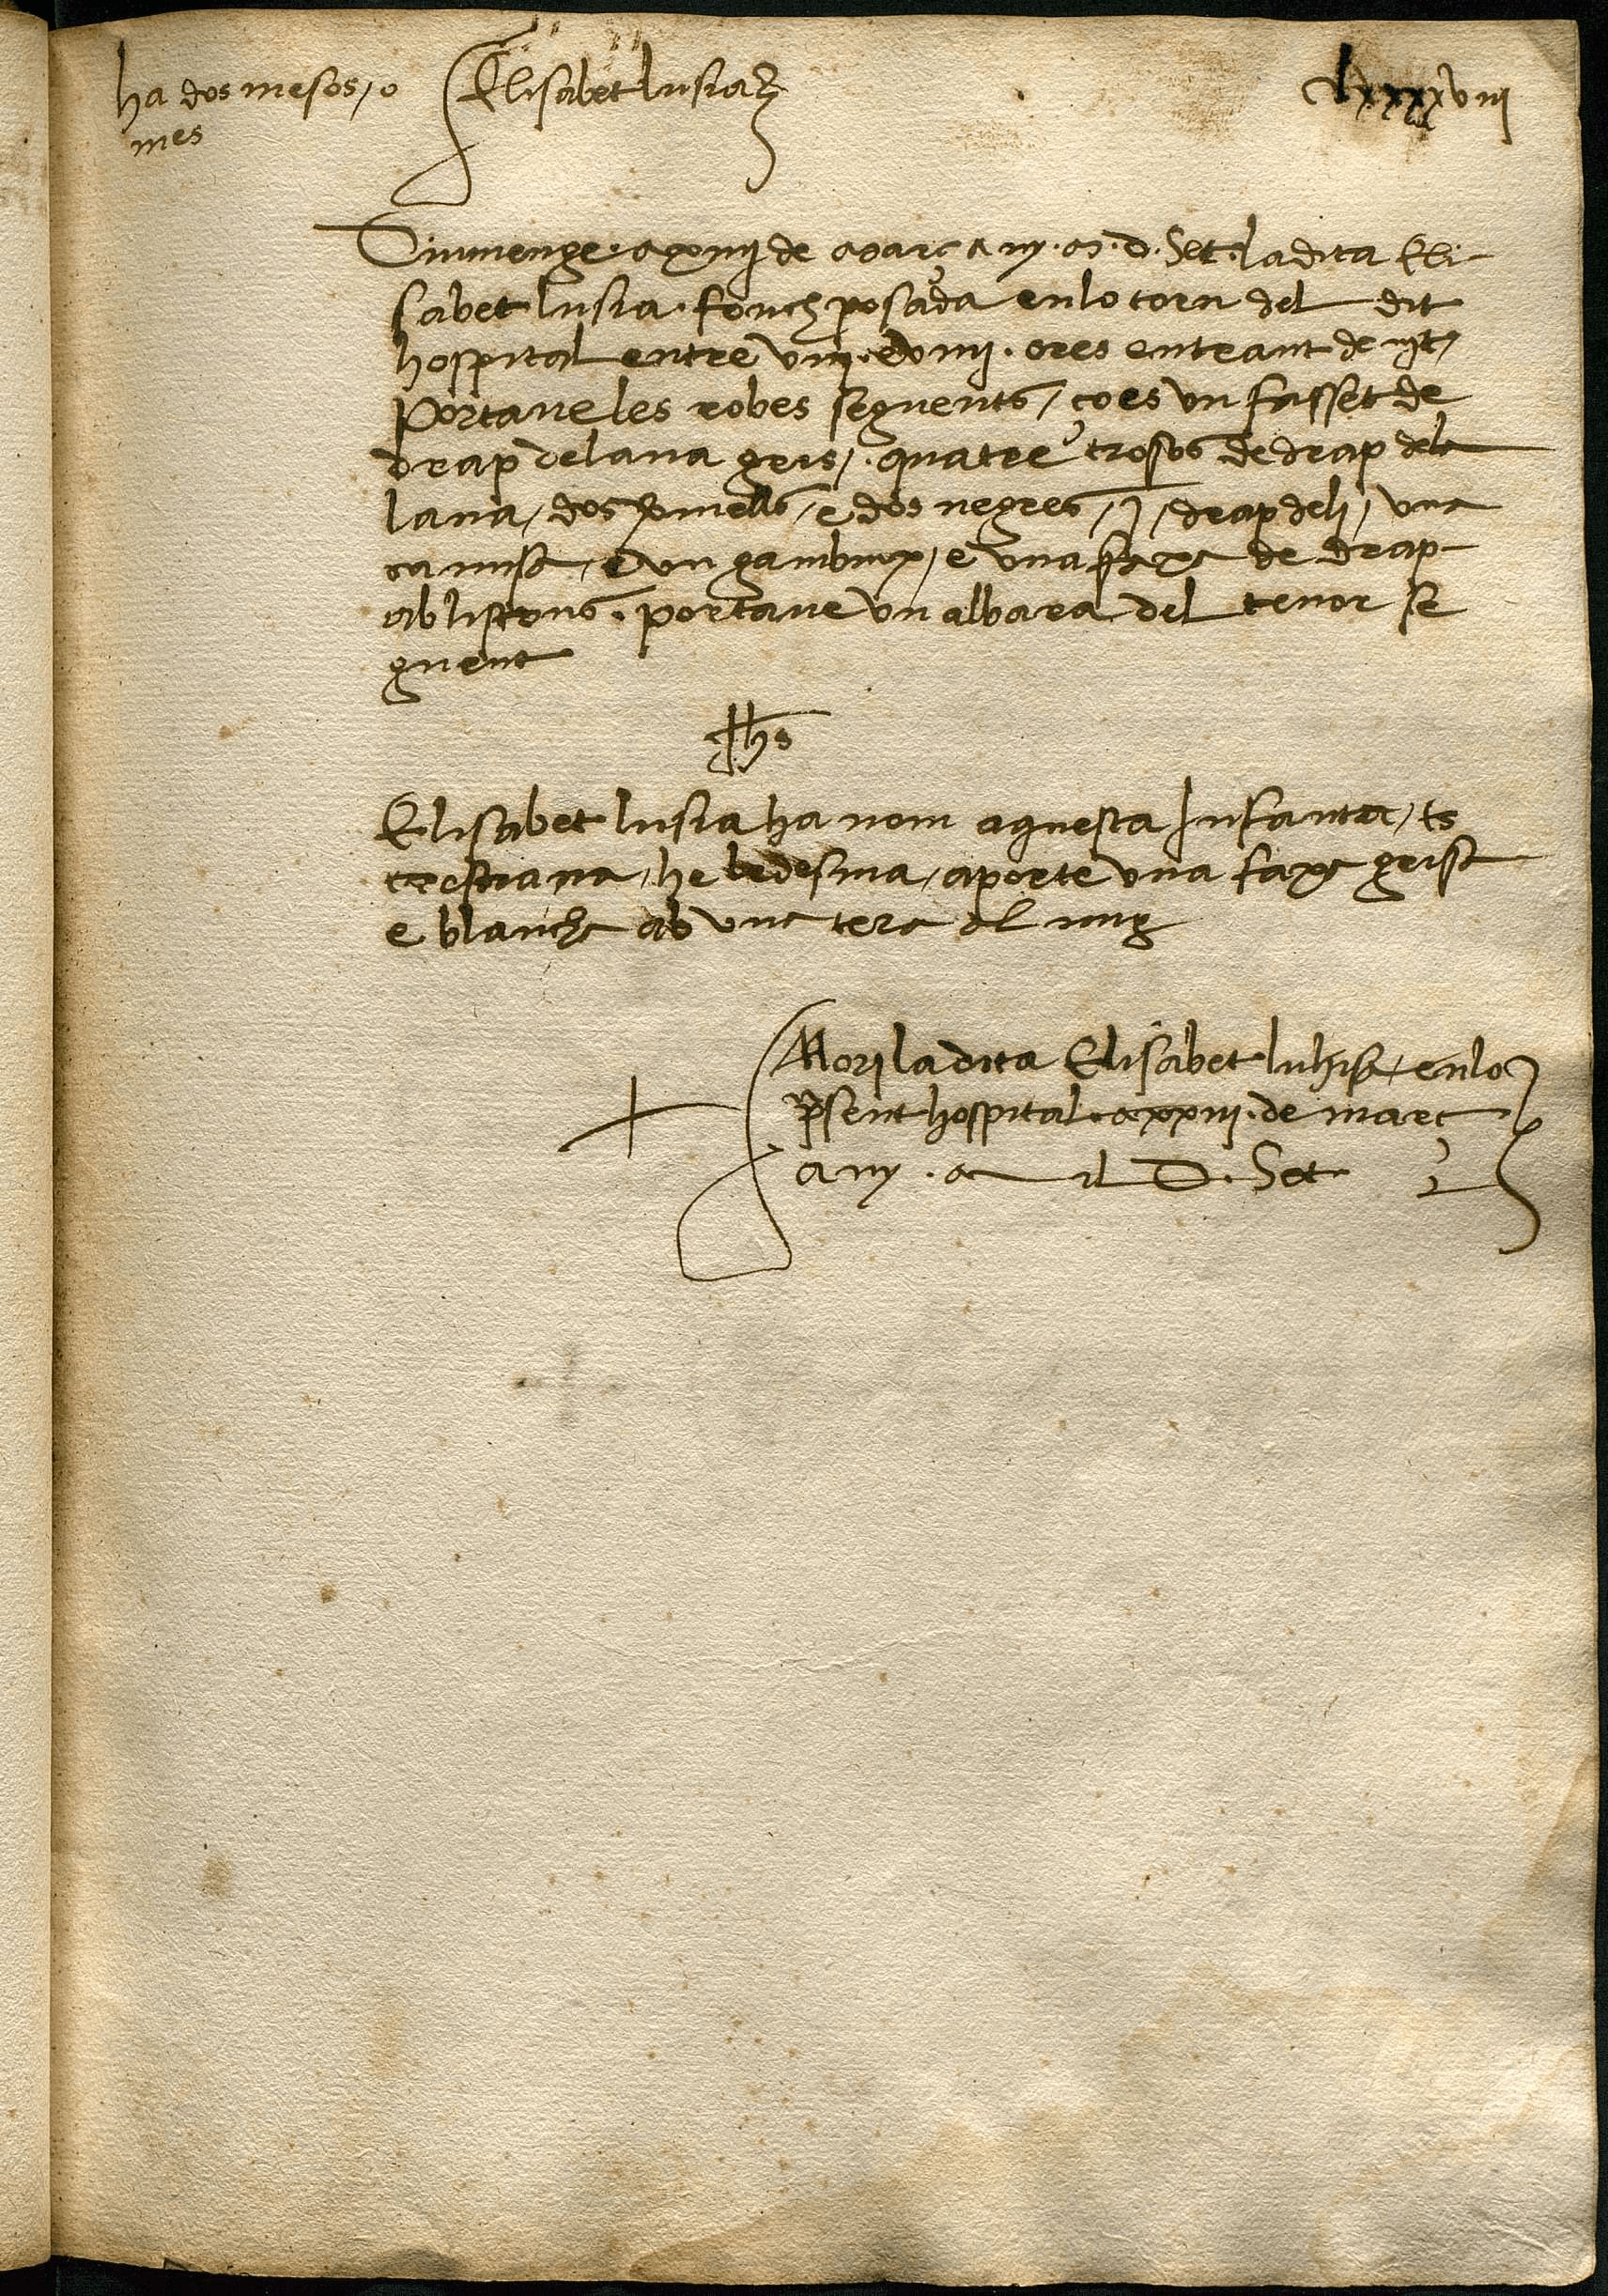 ha dos mesos / o
mes
Elisabet lusia
lxxxxviiij
Diumenge a xiiij de març any M. D. Set la dita Eli
sabet lusia fonch posada en lo torn del dit
hospital entre viij e viiij ores entrant de nit /
Portave les robes seguents / ço es un fasset de
drap de lana gris / quatre trosos de drap de
lana / dos vmells / e dos negres / j / drap de li / una
camisa / e un gambuix / e una faxa de drap
ab listons . portave un albara del tenor se
guent
Jhs
Elisabet lusia ha nom aquesta Infanta / es
crestiana / he bedesma / aporte una faxa grisa
e blancha ab una tera al mig
Mori la dita Elisabet luhisa / en lo
psent hospital a xxiij de març
any M il D. Set